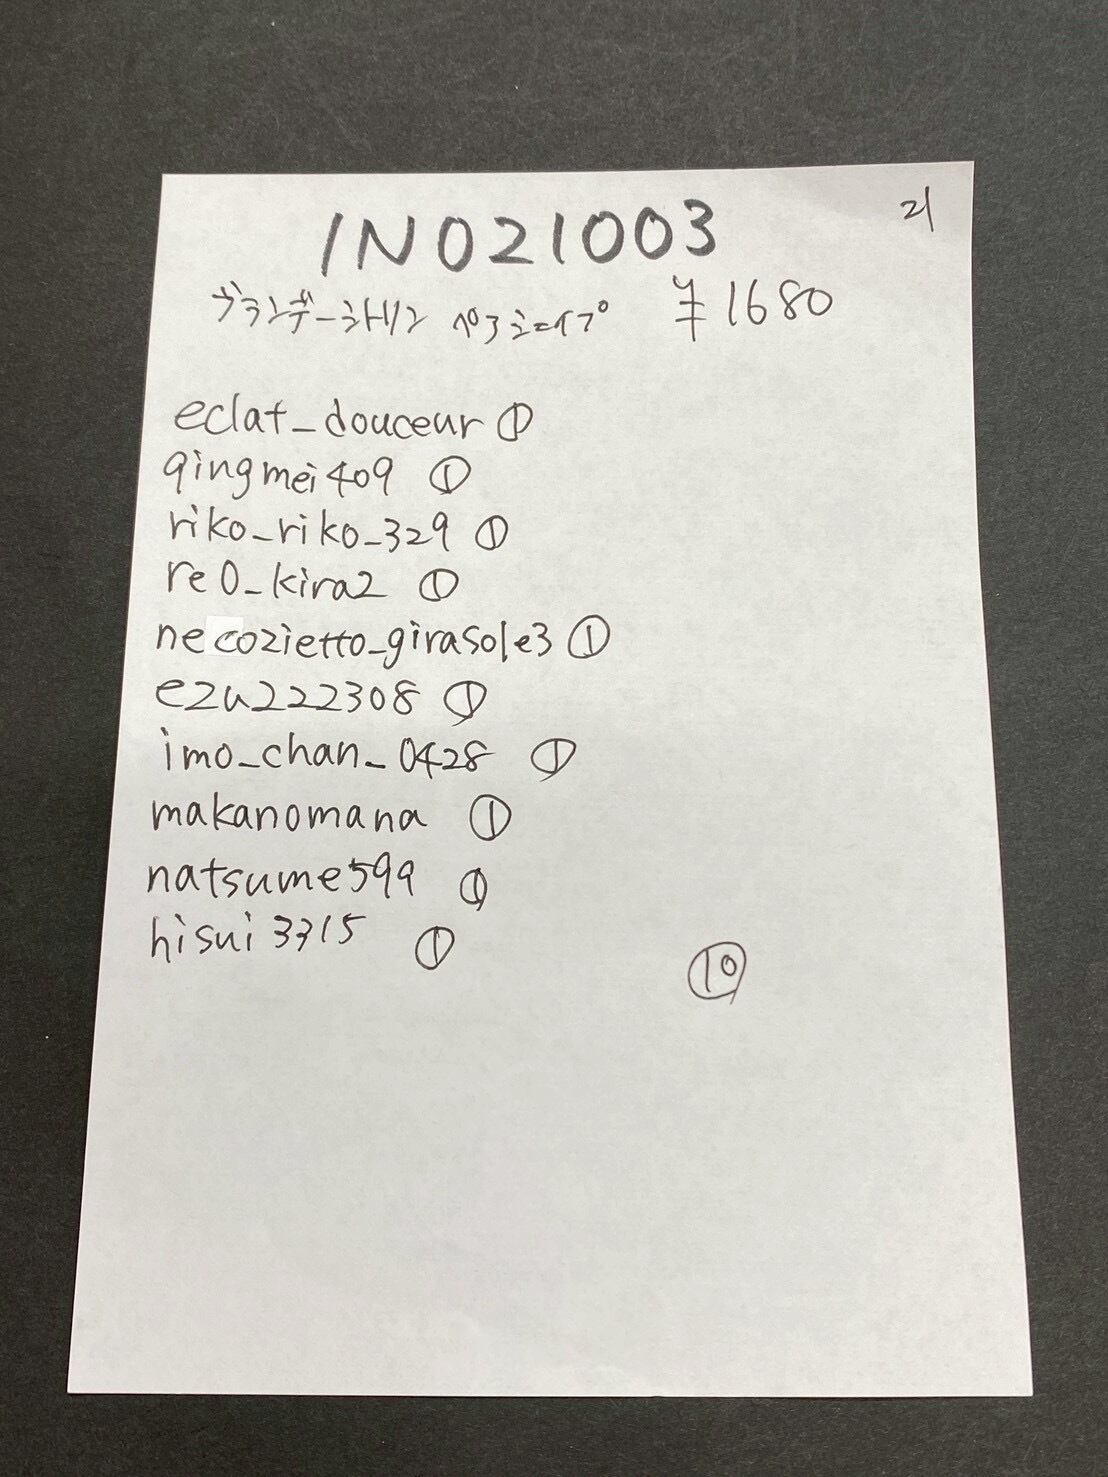 21
INO21003
ブランデーシトリン ペアシェイプ ¥1680
eclat_douceur ①
qingmei409 ①
riko_riko_329 ①
re0_kira2 ①
necozietto_girasole3 ①
ezu222308 ①
imo_chan_0428 ①
makanomana ①
natsume599 ①
hisui3315 ①
⑩